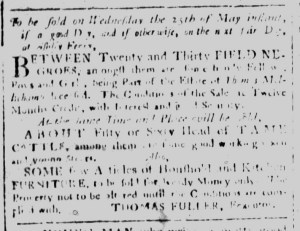 To be sold on Wednesday the 25th of May instant,
if a good Day, and if otherwise, on the next fair Day,
at Ashley Ferry,
BETWEEN Twenty and Thirty FIELD NE-
GROES, amongst them are some
Boys and Girls, being Part of the Estate of Thomas
deceased. The Conditions of the Sale is Twelve
Months Credit, with Interest and good Security.
At the same Time and Place will be sold,
ABOUT Fifty or Sixty Head of TAME
CATTLE, among them are some good working oxen
and young Steers. Also,
SOME few Articles of Houshold and Kitchen
FURNITURE, to be sold for ready Money only. The
Property not to be altered until the Conditions are com-
plied with. THOMAS FULLER, Executor.